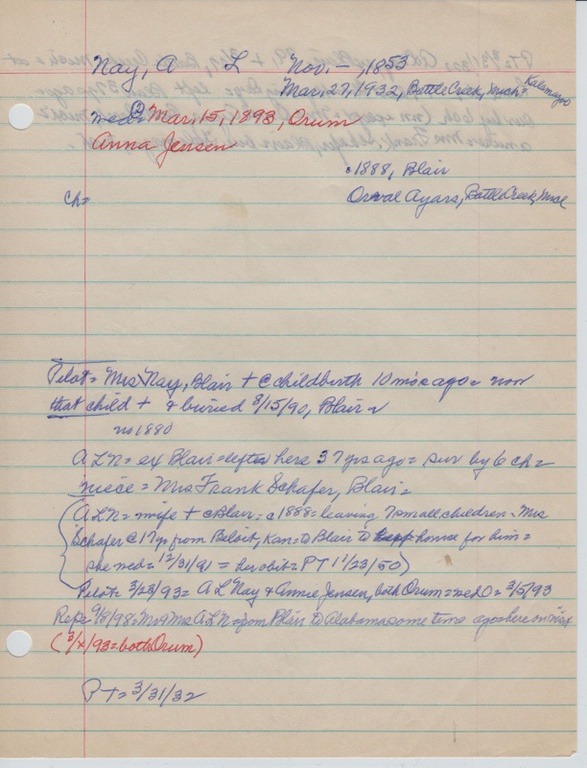 Nay, A L Nov. -, 1853
Mar. 27, 1932, Battle Creek, Mich = Kalamazoo
wed ② Mar. 15, 1893, Orum
Anna Jensen
c1888, Blair
Orval Ayars, Battle Creek, Mich
Ch=
Pilot = Mrs Nay, Blair + c childbirth 10 mos ago = now
that child + & buried 8/15/90, Blair
no 1880
A L N = ex Blair = left here 37 yrs ago = sur by 6 ch =
niece = Mrs Frank Schafer, Blair =
(A L N = wife + c Blair = c1888 = leaving 7 small children. Mrs
Schafer @ 17 yr from Beloit, Kan = to Blair to keep house for him =
she wed = 12/31/91 = her obit = PT 11/23/50)
Pilot = 3/23/93 = A L Nay & Annie Jensen, both Orum = wed O = 3/15/93
Rep = 9/8/98 = Mr & Mrs A L N = from Blair to Alabama some time ago = here on visit
(3/x/93 = both Orum)
PT = 3/31/32